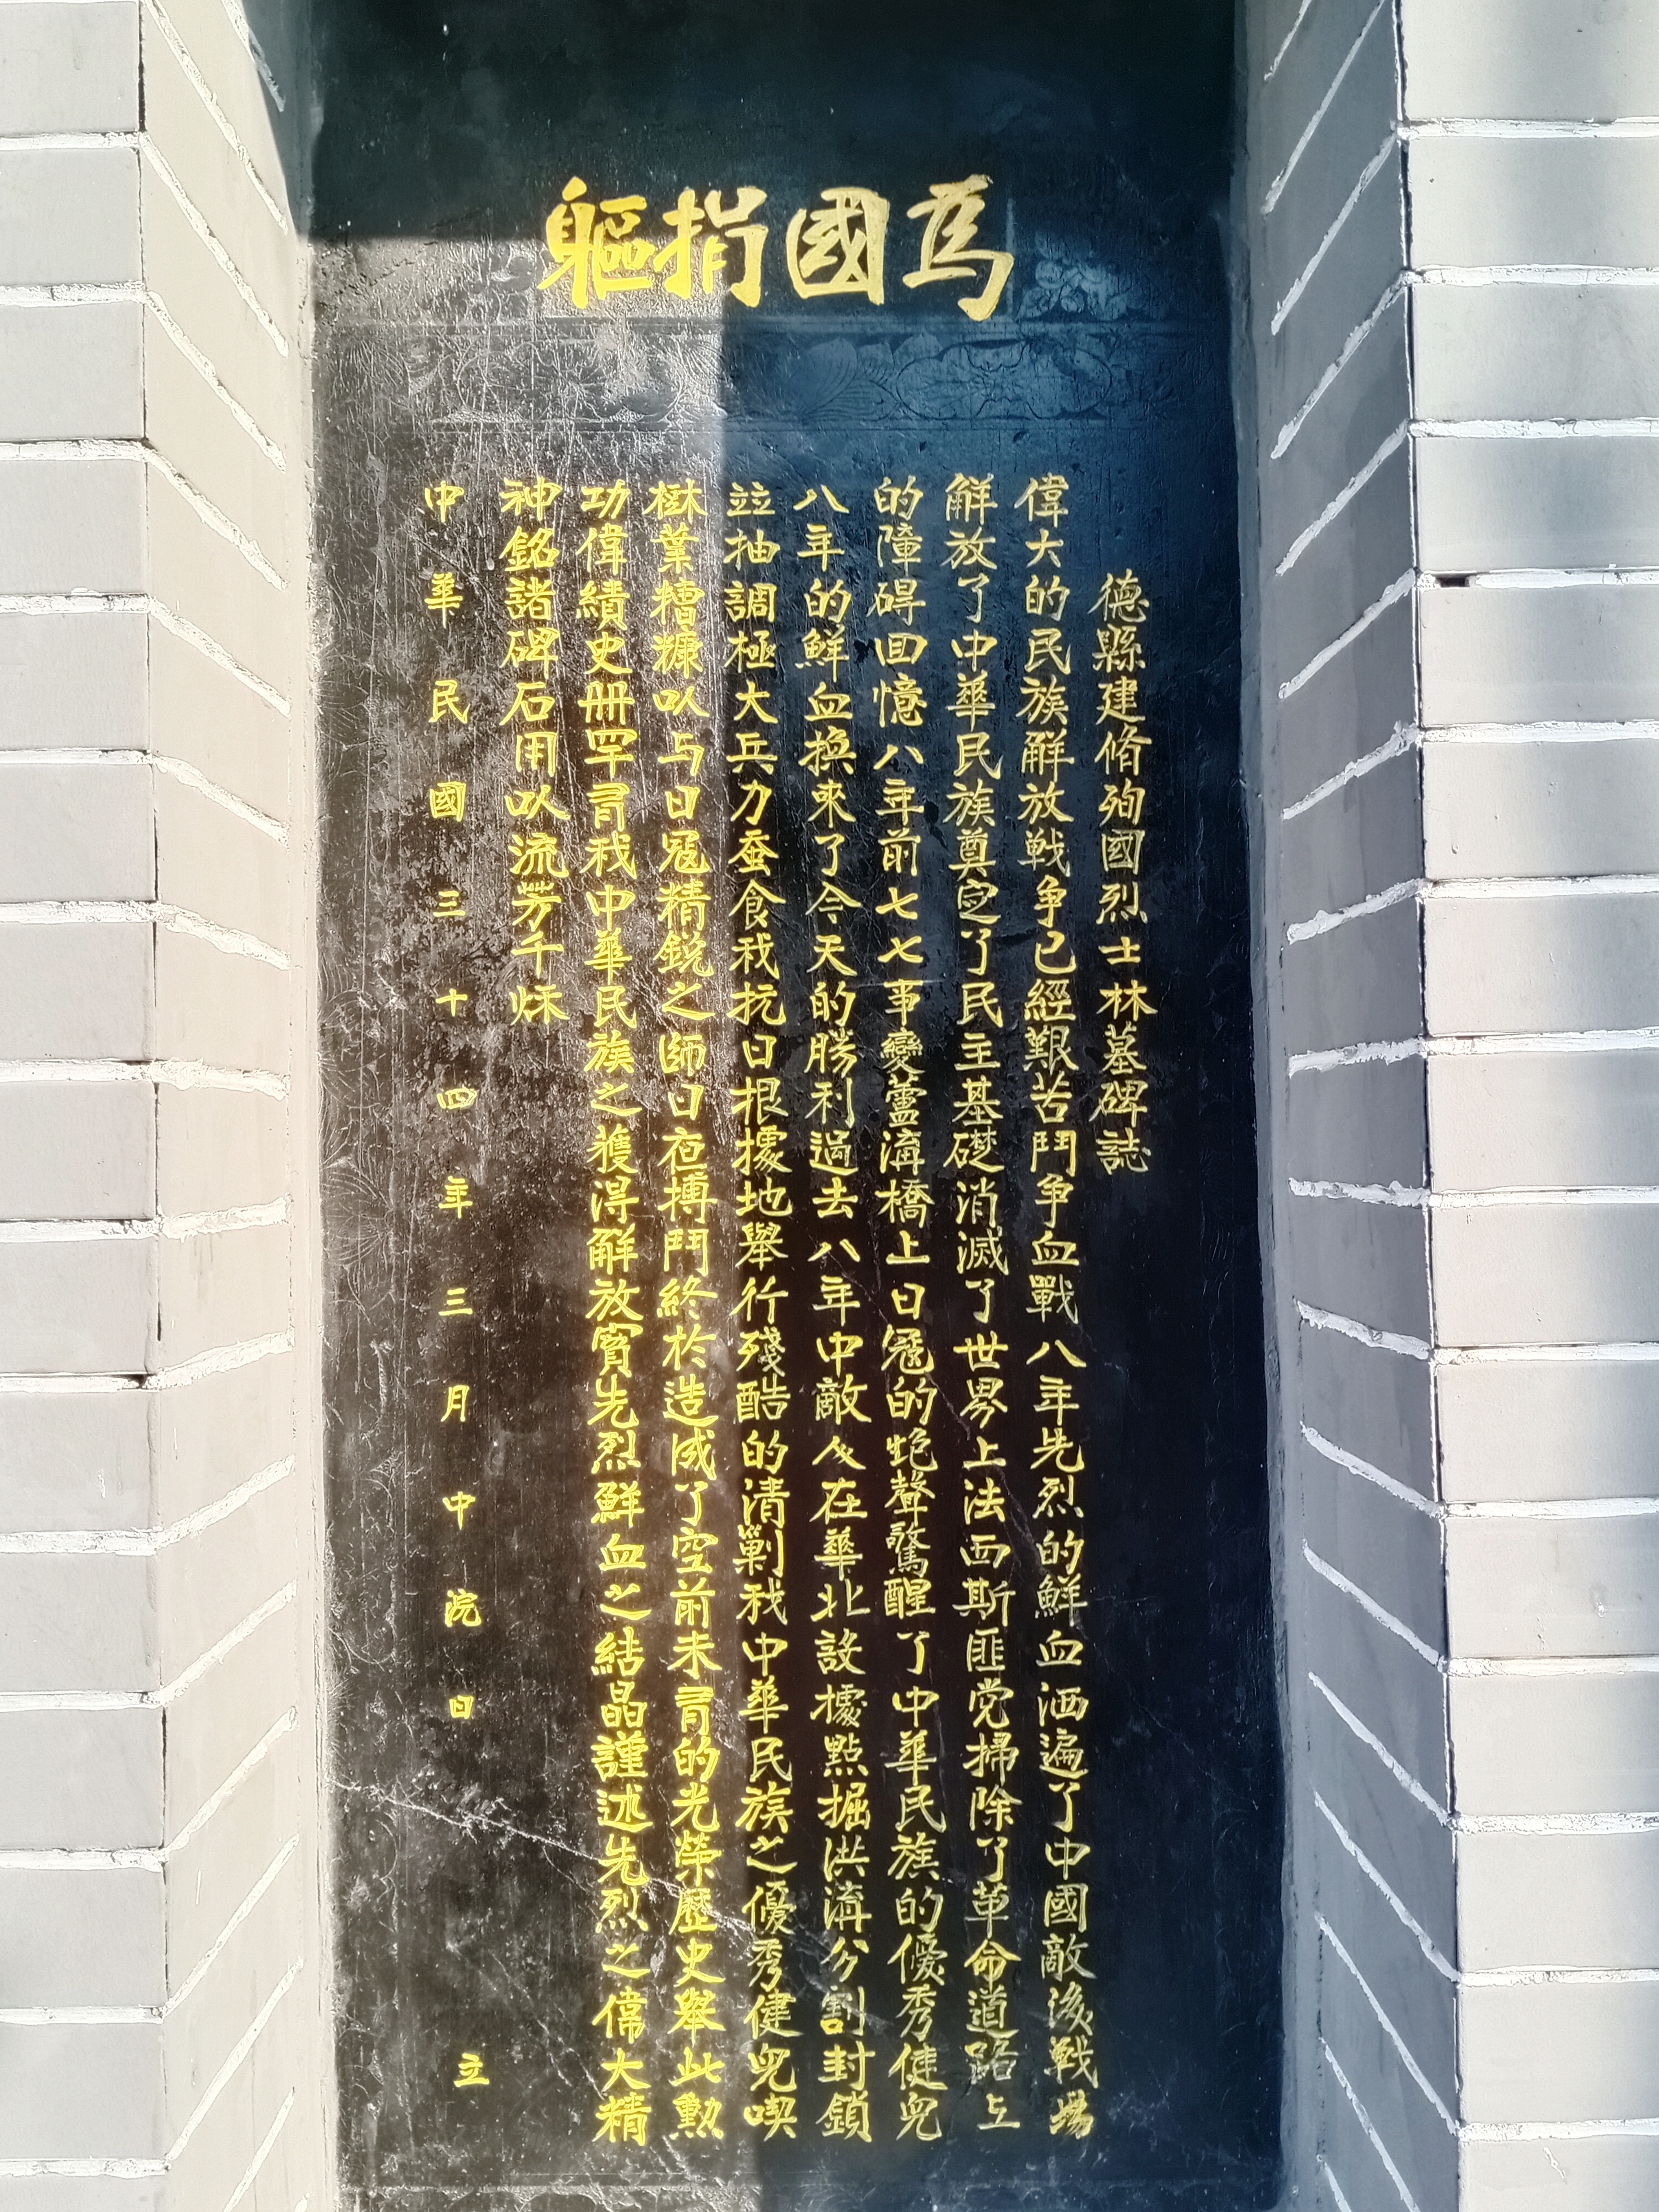 為國捐軀
德縣建脩殉國烈士林墓碑誌
偉大的民族解放戦争已經艱苦鬥争血戰八年先烈的鮮血洒遍了中國敵後戦場
解放了中華民族奠定了民主基礎消滅了世界上法西斯匪党掃除了革命道路上
的障碍回憶八年前七七事變蘆溝橋上日寇的炮聲驚醒了中華民族的優秀健兒
八年的鮮血換來了今天的勝利過去八年中敵人在華北設據點掘洪溝分割封鎖
並抽調極大兵力蚕食我抗日根據地舉行殘酷的清剿我中華民族之優秀健兒喫
樹葉糟糠以与日寇精銳之師日夜搏鬥終於造成了空前未有的光榮歷史舉此勳
功偉績史册罕有我中華民族之獲得解放實先烈鮮血之結晶謹述先烈之偉大精
神銘諸碑石用以流芳千秌
中華民國三十四年三月中浣日立